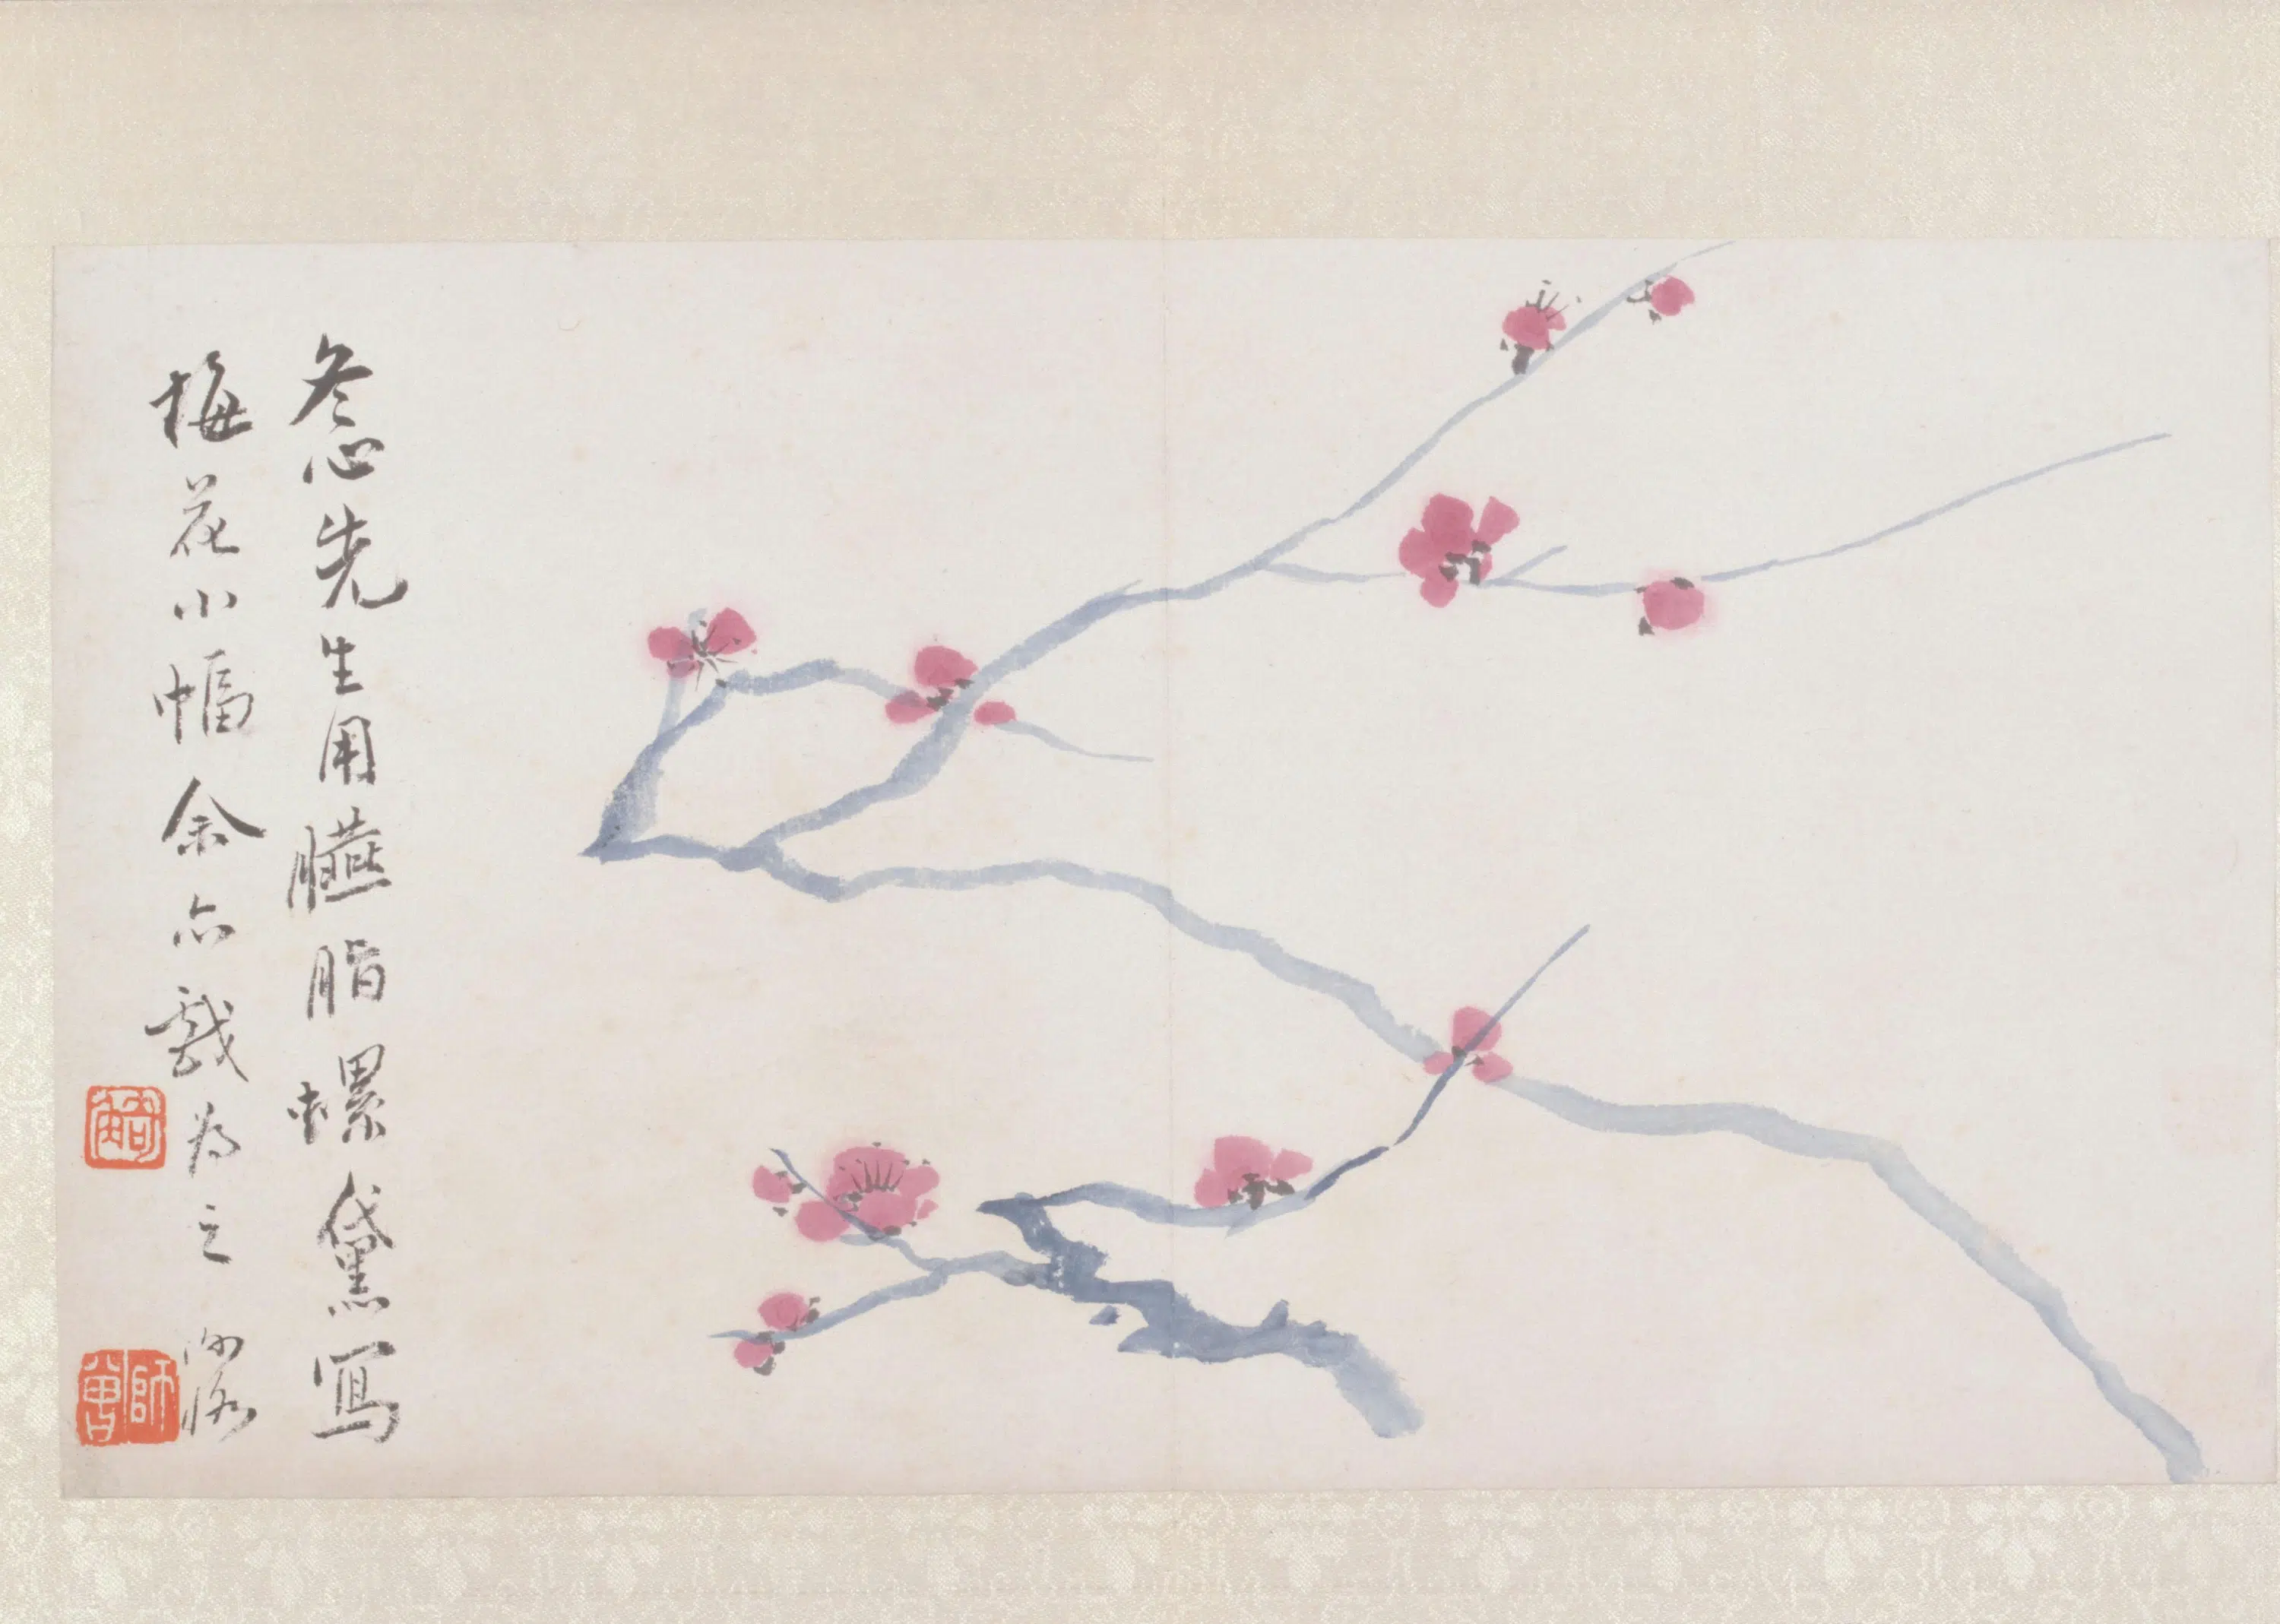 冬心先生用臙脂螺黛寫
梅花小幅余亦戲為之 衡恪
師曾